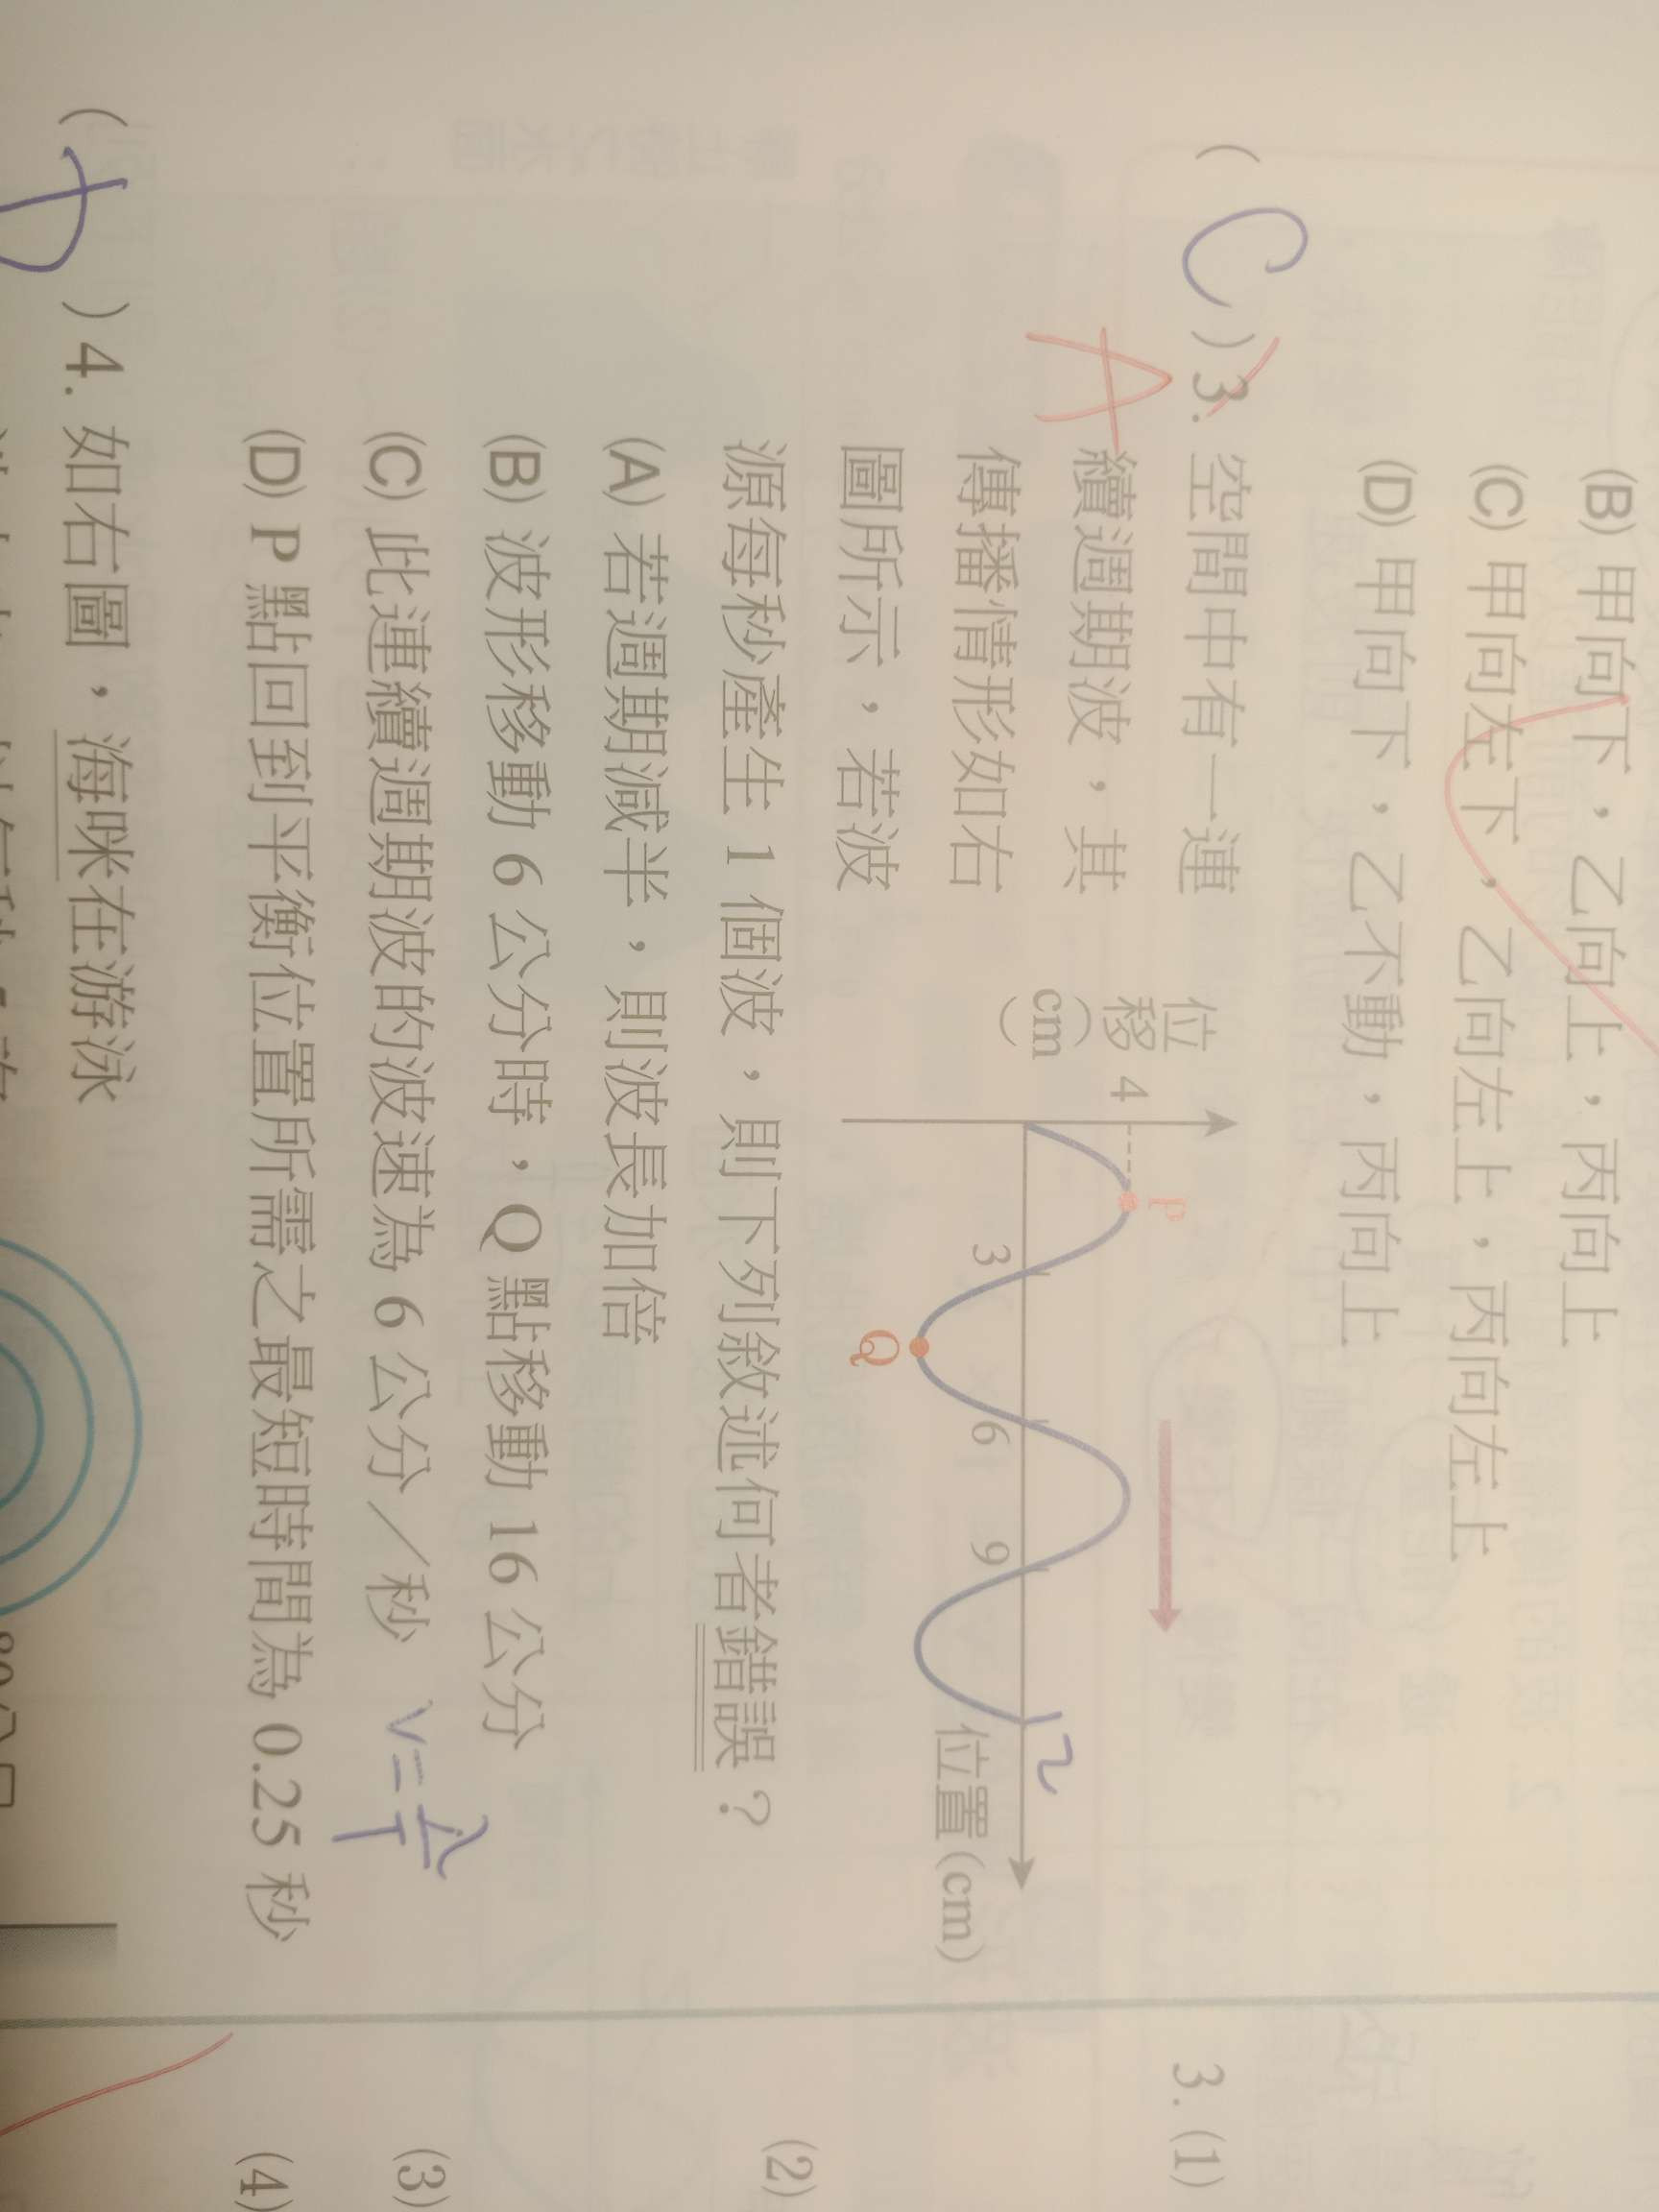 (B) 甲向下，乙向上，丙向上
(C) 甲向左下，乙向左上，丙向左上
(D) 甲向下，乙不動，丙向上
( C ) 3. 空間中有一連
A
續週期波，其
傳播情形如右
圖所示，若波
源每秒產生 1 個波，則下列敘述何者錯誤？
位移(cm)
4
P
3
Q
6
9
12
位置(cm)
(A) 若週期減半，則波長加倍
(B) 波形移動 6 公分時，Q 點移動 16 公分
(C) 此連續週期波的波速為 6 公分／秒
V=λ/T
(D) P 點回到平衡位置所需之最短時間為 0.25 秒
( D ) 4. 如右圖，海咪在游泳
3. (1)
(2)
(3)
(4)